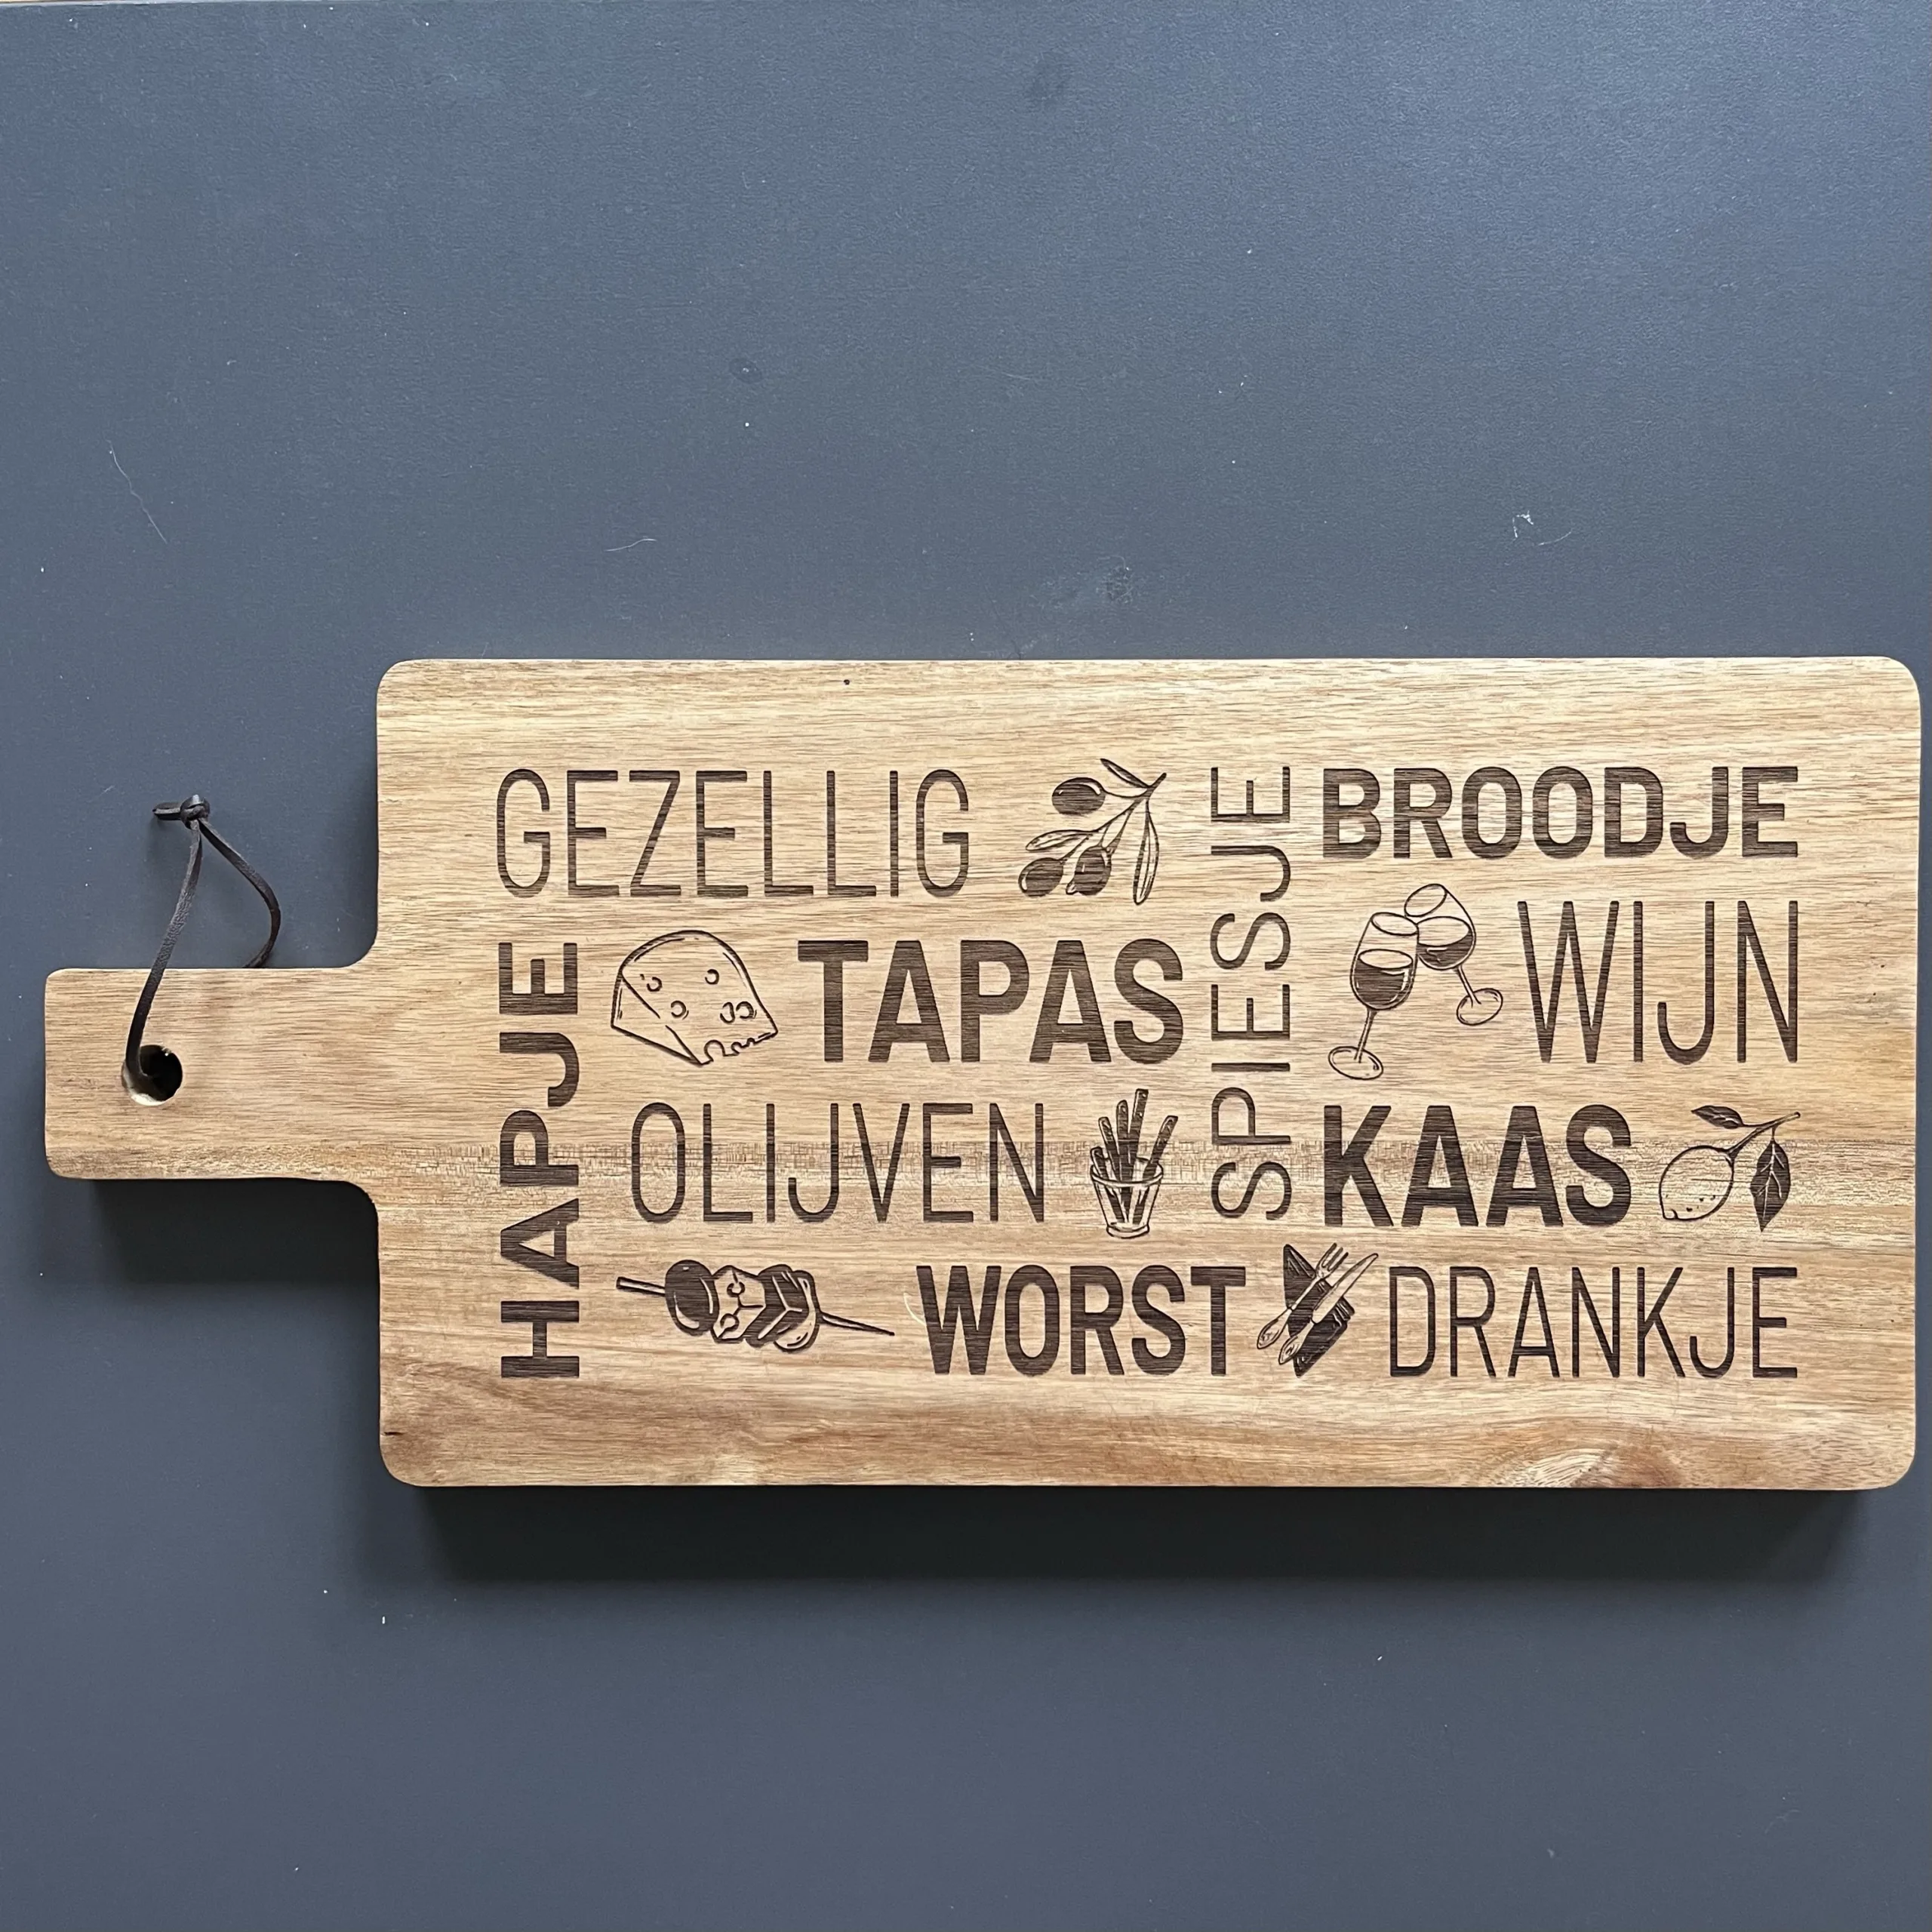 GEZELLIG
HAPJE
TAPAS
OLIJVEN
WORST
SPIESJE
BROODJE
WIJN
KAAS
DRANKJE